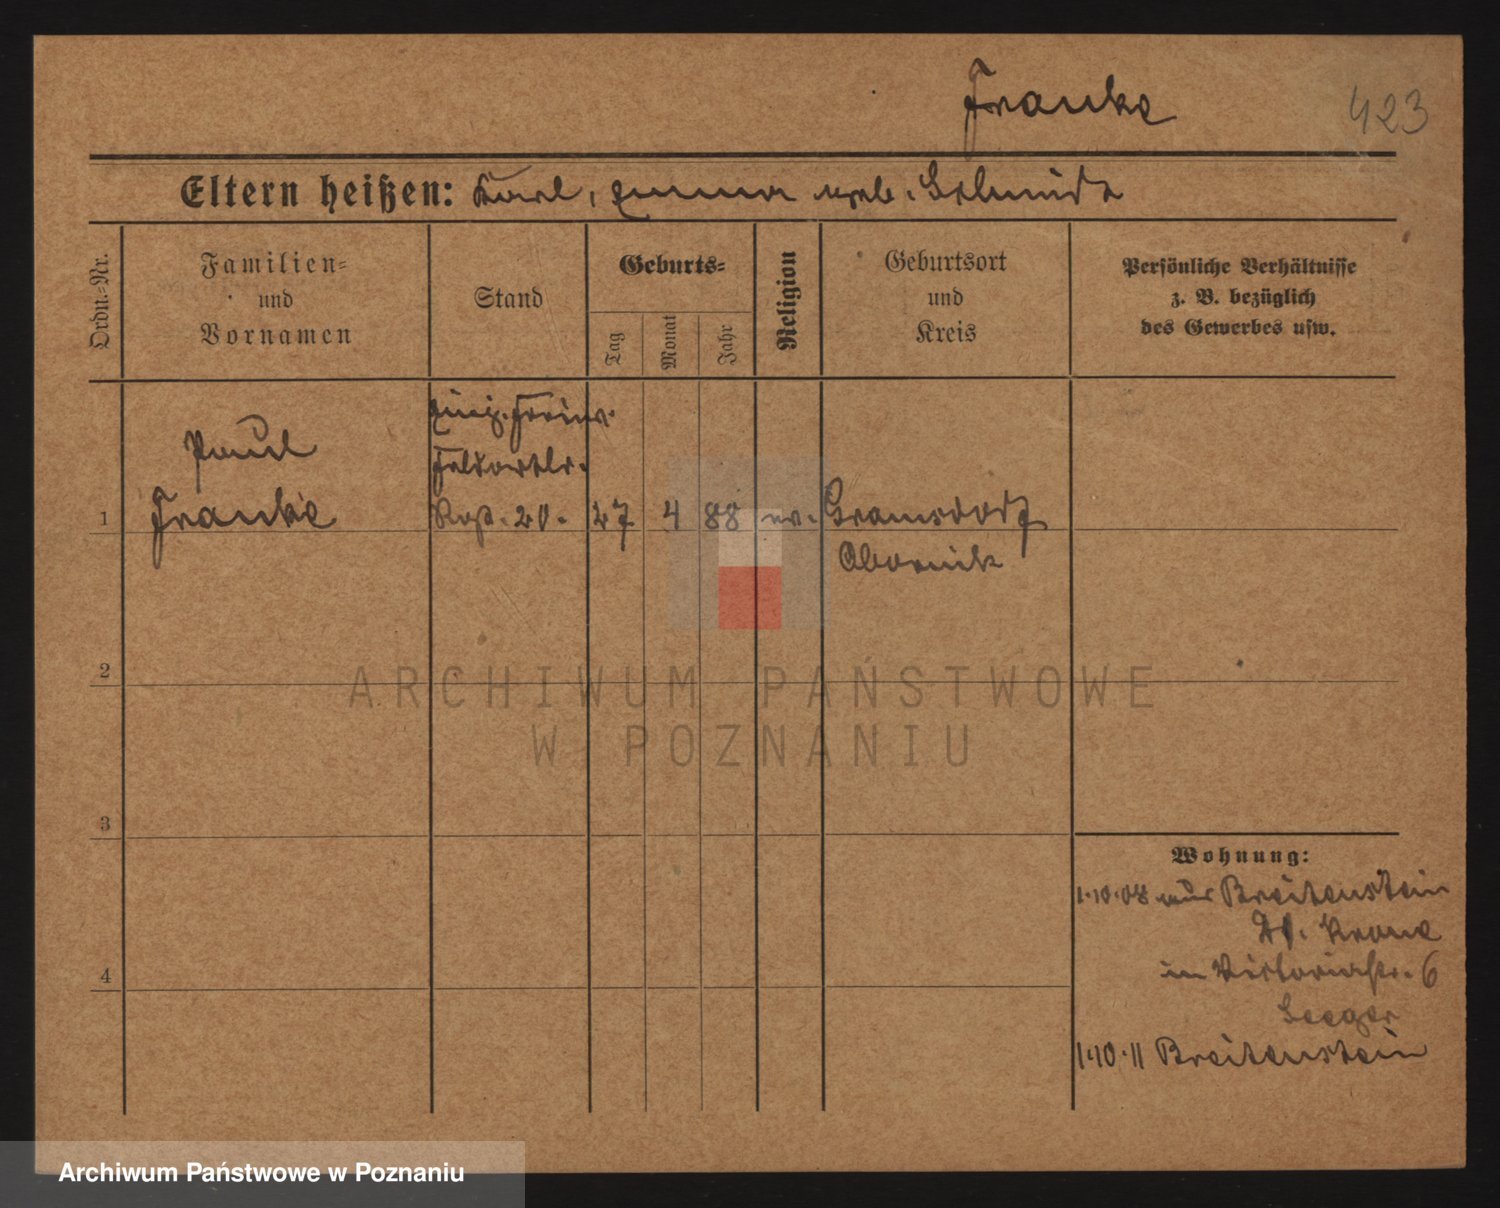 Franke
423
Eltern heißen: Karl, Emma geb. Schmidt
Ordn.-Nr.
Familien-
und
Vornamen
Stand
Geburts-
Tag
Monat
Jahr
Religion
Geburtsort
und
Kreis
Persönliche Verhältnisse
z. B. bezüglich
des Gewerbes usw.
Einj. Freiw.
Paul
Feldartlr.
1 Franke Regt. 20. 27 4 88 ev. Gramsdorf
Obornik
2
ARCHIWUM PAŃSTWOWE
W POZNANIU
3
Wohnung:
1.10.08 aus Breitenstein
Dt. Krone
4
in Viktoriastr. 6
Seeger
1.10.11 Breitenstein
Archiwum Państwowe w Poznaniu